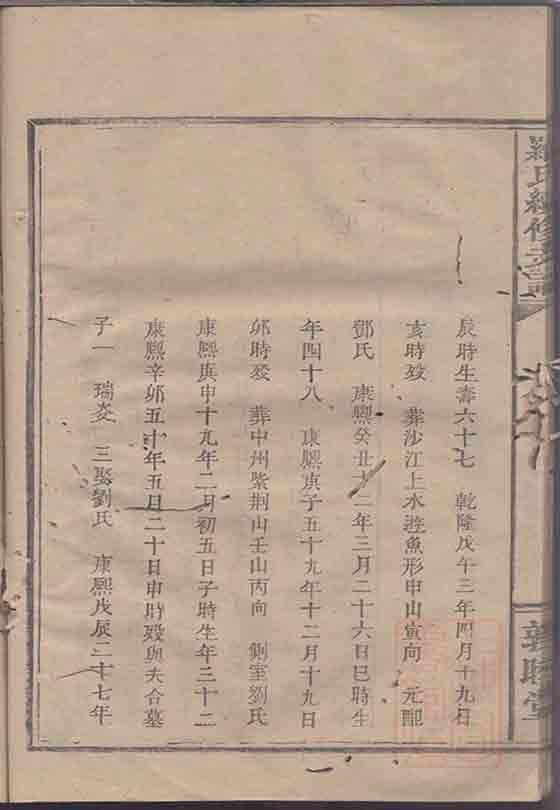 羅氏續修支譜
辰時生壽六十七　乾隆戊午三年四月十九日
亥時歿　葬沙江上水遊魚形申山寅向　元配
鄧氏　康熙癸丑十二年三月二十六日巳時生
年四十八　康熙庚子五十九年十二月十九日
卯時歿　葬中州紫荆山壬山丙向　側室劉氏
康熙庚申十九年二月初五日子時生年三十二
康熙辛卯五十年五月二十日申時歿與夫合墓
子一　瑞炎　三娶劉氏　康熙戊辰二十七年